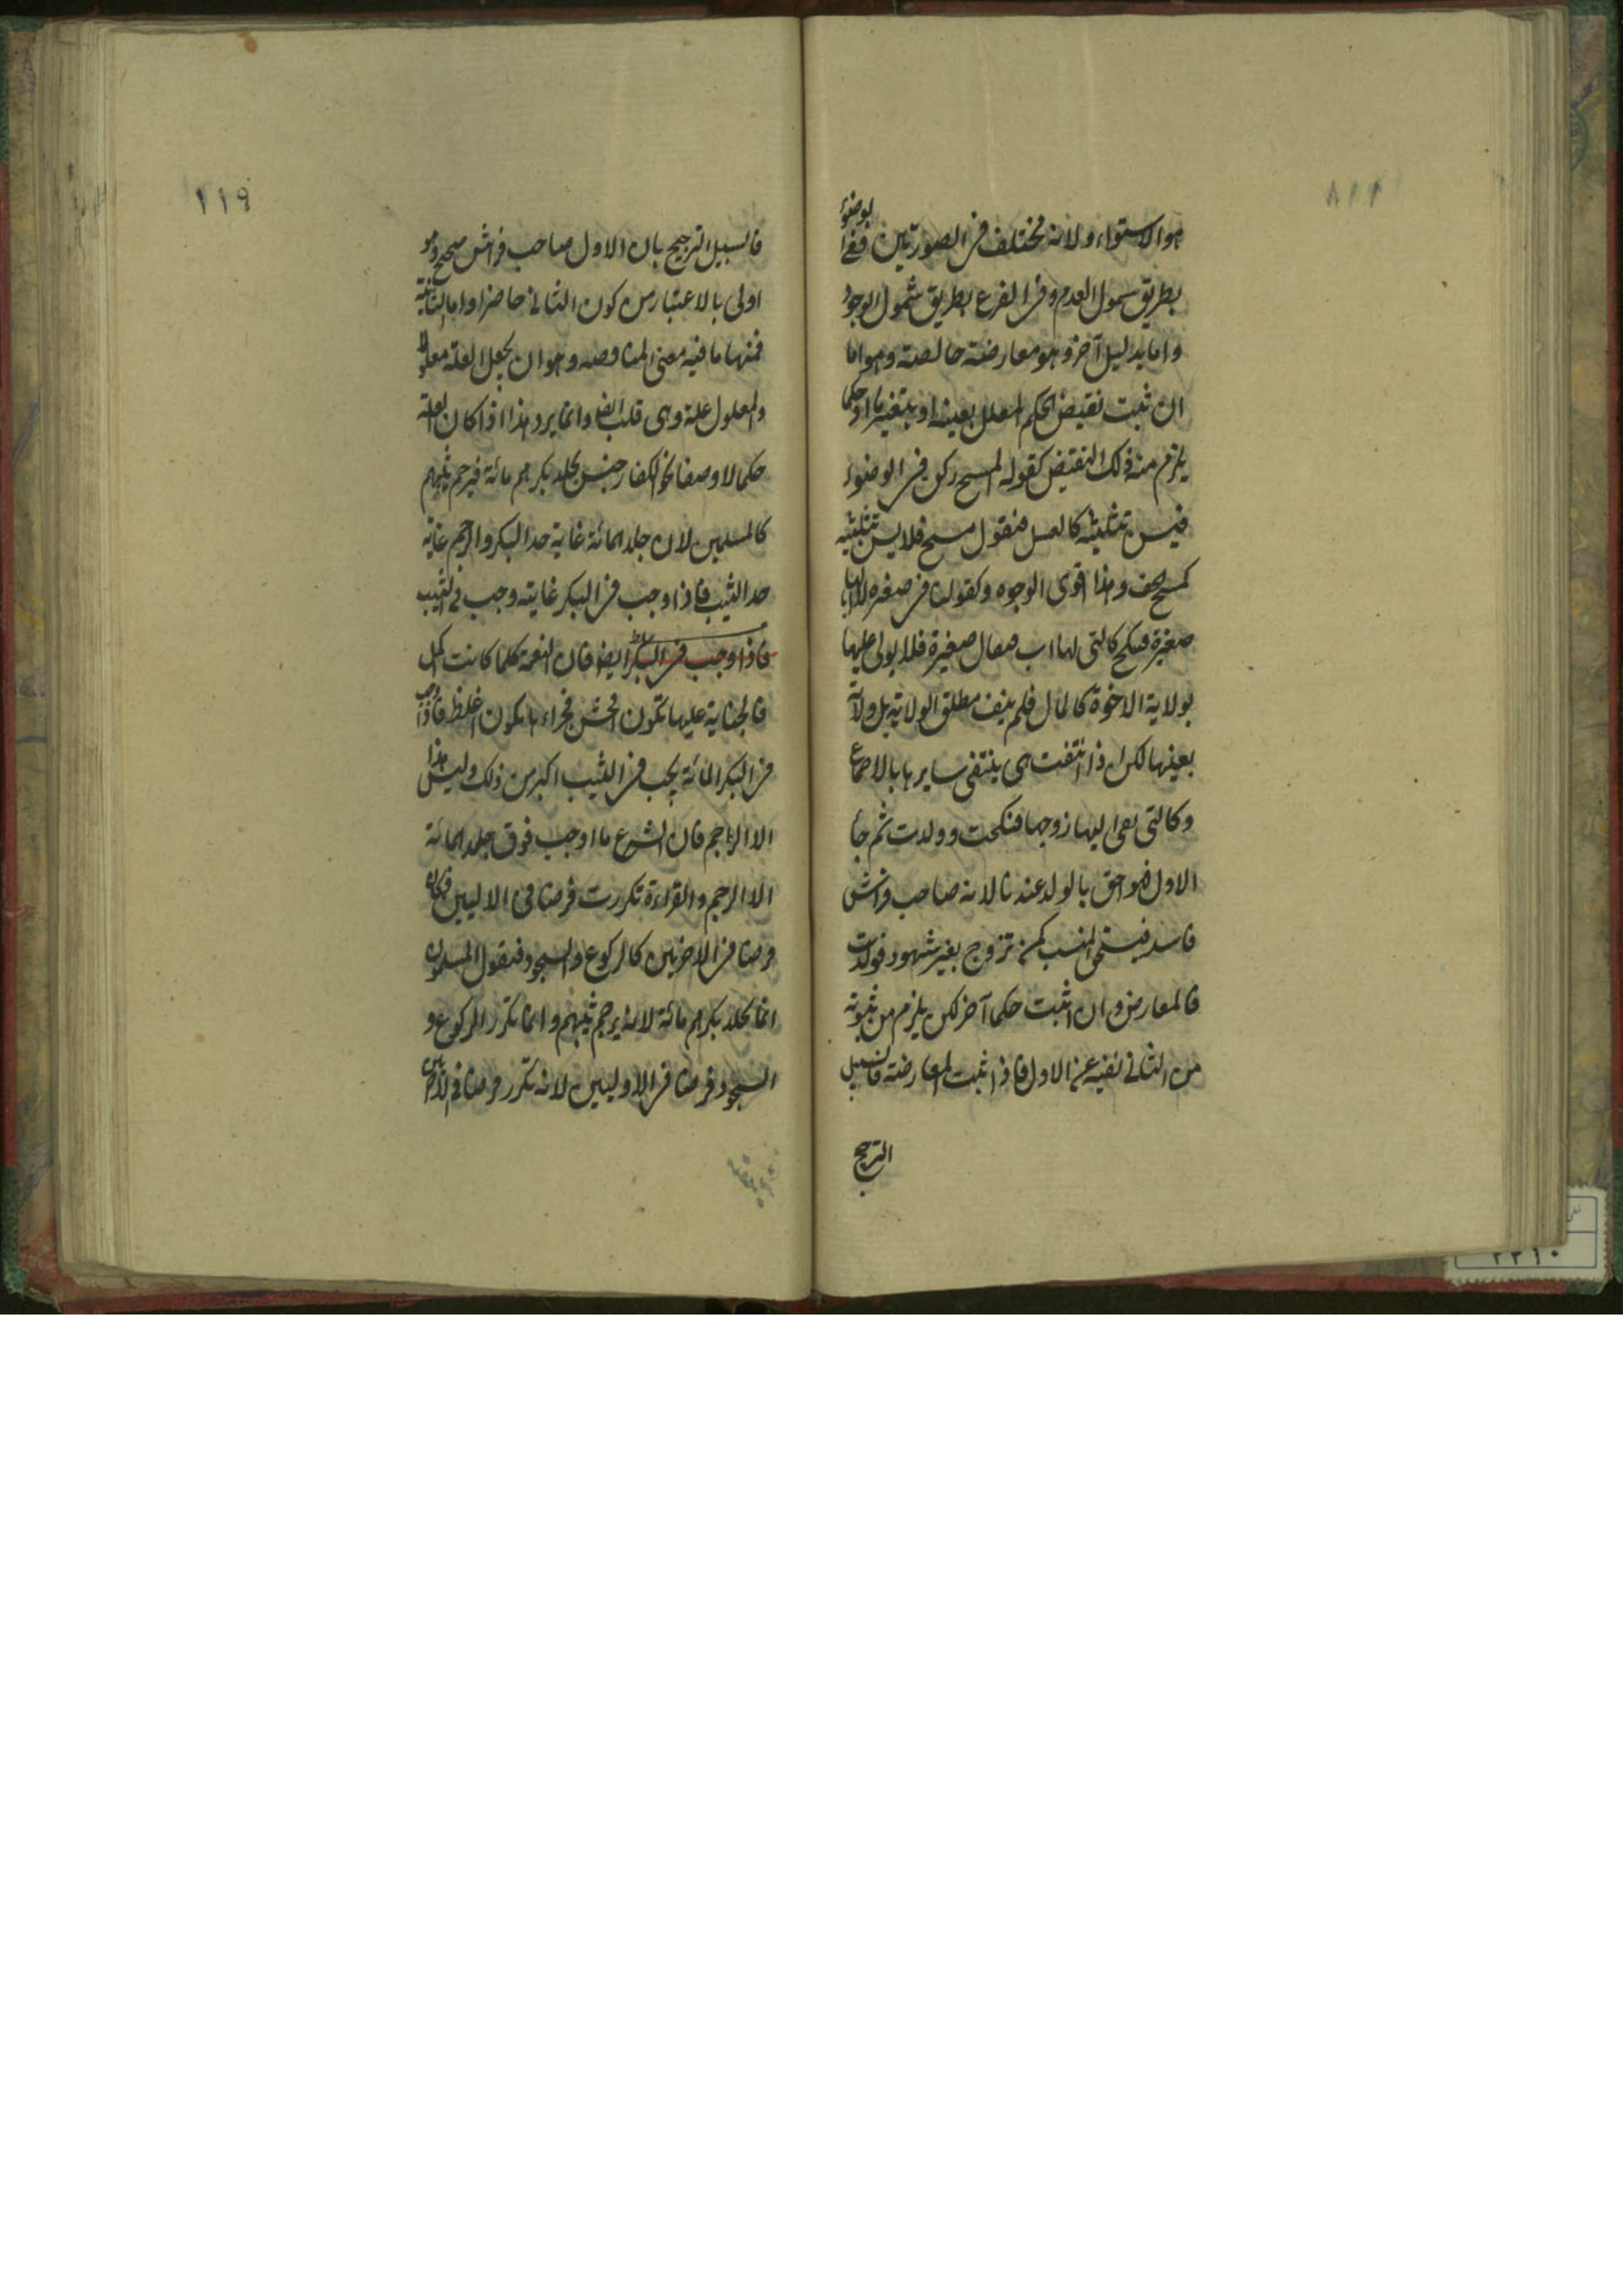 ١١٨
هو الاستواء ولانه مختلف فى الصورتين ففى الوضوء
بطريق شمول العدم وفى الفرع بطريق شمول الوجود
واما بدليل آخر وهو معارضة خالصة وهو اما
ان يثبت نقيض الحكم المعلل بعينه او بتغيير ما او حكما
يلزم منه ذلك النقيض كقوله المسح ركن فى الوضوء
فيسن تثليثه كالغسل فنقول مسح فلا يسن تثليثه
كمسح الخف وهذا اقوى الوجوه وكقولنا فى صغيرة لا اب لها
صغيرة فتنكح كالتى لها اب فقال صغيرة فلا يولى عليها
بولاية الاخوة كالمال فلم ينف مطلق الولاية بل ولاية
بعينها لكن اذا انتفت هى ينتفى سايرها بالاجماع
وكالتى نعى اليها زوجها فنكحت وولدت ثم جاء
الاول فهو احق بالولد عندنا لانه صاحب فراش
فاسد فيستحق النسب كمن تزوج بغير شهود فولدت
فالمعارض وان اثبت حكما آخر لكن يلزم من ثبوته
من الثانى نفيه عن الاول فاذا ثبت المعارضة فالسبيل
الترجيح
١١٩
فالسبيل الترجيح بان الاول صاحب فراش صحيح وهو
اولى بالاعتبار من كون الثانى حاضرا واما الثانية
فمنها ما فيه معنى المناقضة وهو ان يجعل العلة معلولا
والمعلول علة وهى قلب ايضا وانما يرد هذا اذا كان العلة
حكما لا وصفا نحو الكفار جنس يجلد بكرهم مائة فيرجم ثيبهم
كالمسلمين لان جلد المائة غاية حد البكر والرجم غاية
حد الثيب فاذا وجب فى البكر غايته وجب فى الثيب
فاذا وجب فى البكر ايضا فان النعمة كلما كانت اكمل
فالجناية عليها تكون افحش فجزاءها يكون اغلظ فاذا وجب
فى البكر المائة يجب فى الثيب اكبر من ذلك وليس هذا
الا الرجم فان الشرع ما اوجب فوق جلد المائة
الا الرجم والقراءة تكررت فرضا فى الاوليين فكان
فرضا فى الاخريين كالركوع والسجود فنقول المسلمون
انما يجلد بكرهم مائة لانه يرجم ثيبهم وانما تكرر الركوع و
السجود فرضا فى الاوليين لانه تكرر فرضا فى الاخريين